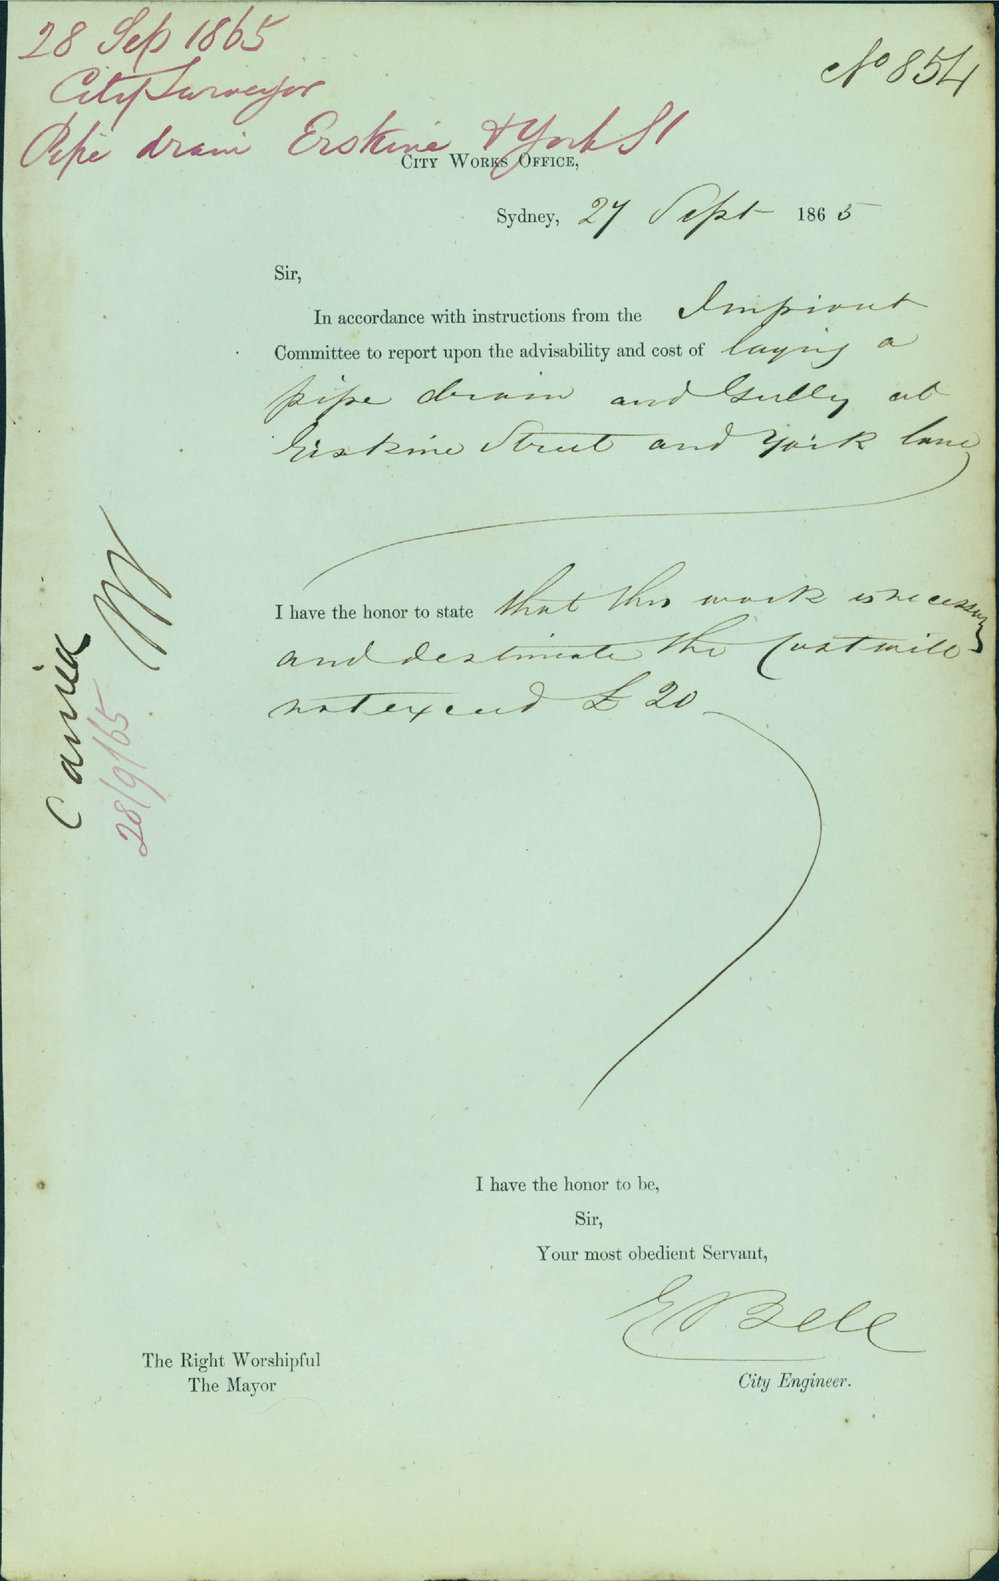 28 Sep 1865
City Surveyor
No 854
Pipe drain Erskine & York St
City Works Office,
Sydney, 27 Sept 1865
Sir,
In accordance with instructions from the Improvnt
Committee to report upon the advisability and cost of laying a
pipe drain and Gully at
Erskine Street and York lane
I have the honor to state that this work is necessary
and destimate the Cost will
not exceed £20
Carried
28/9/65
I have the honor to be,
Sir,
Your most obedient Servant,
E Bell
City Engineer.
The Right Worshipful
The Mayor